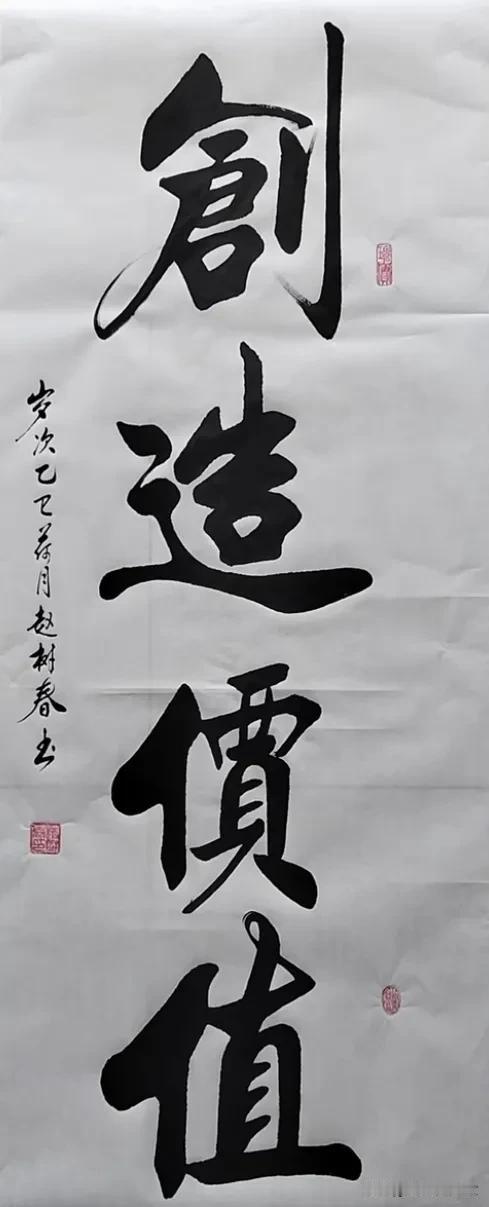 創造價值
岁次乙巳荷月赵树春书